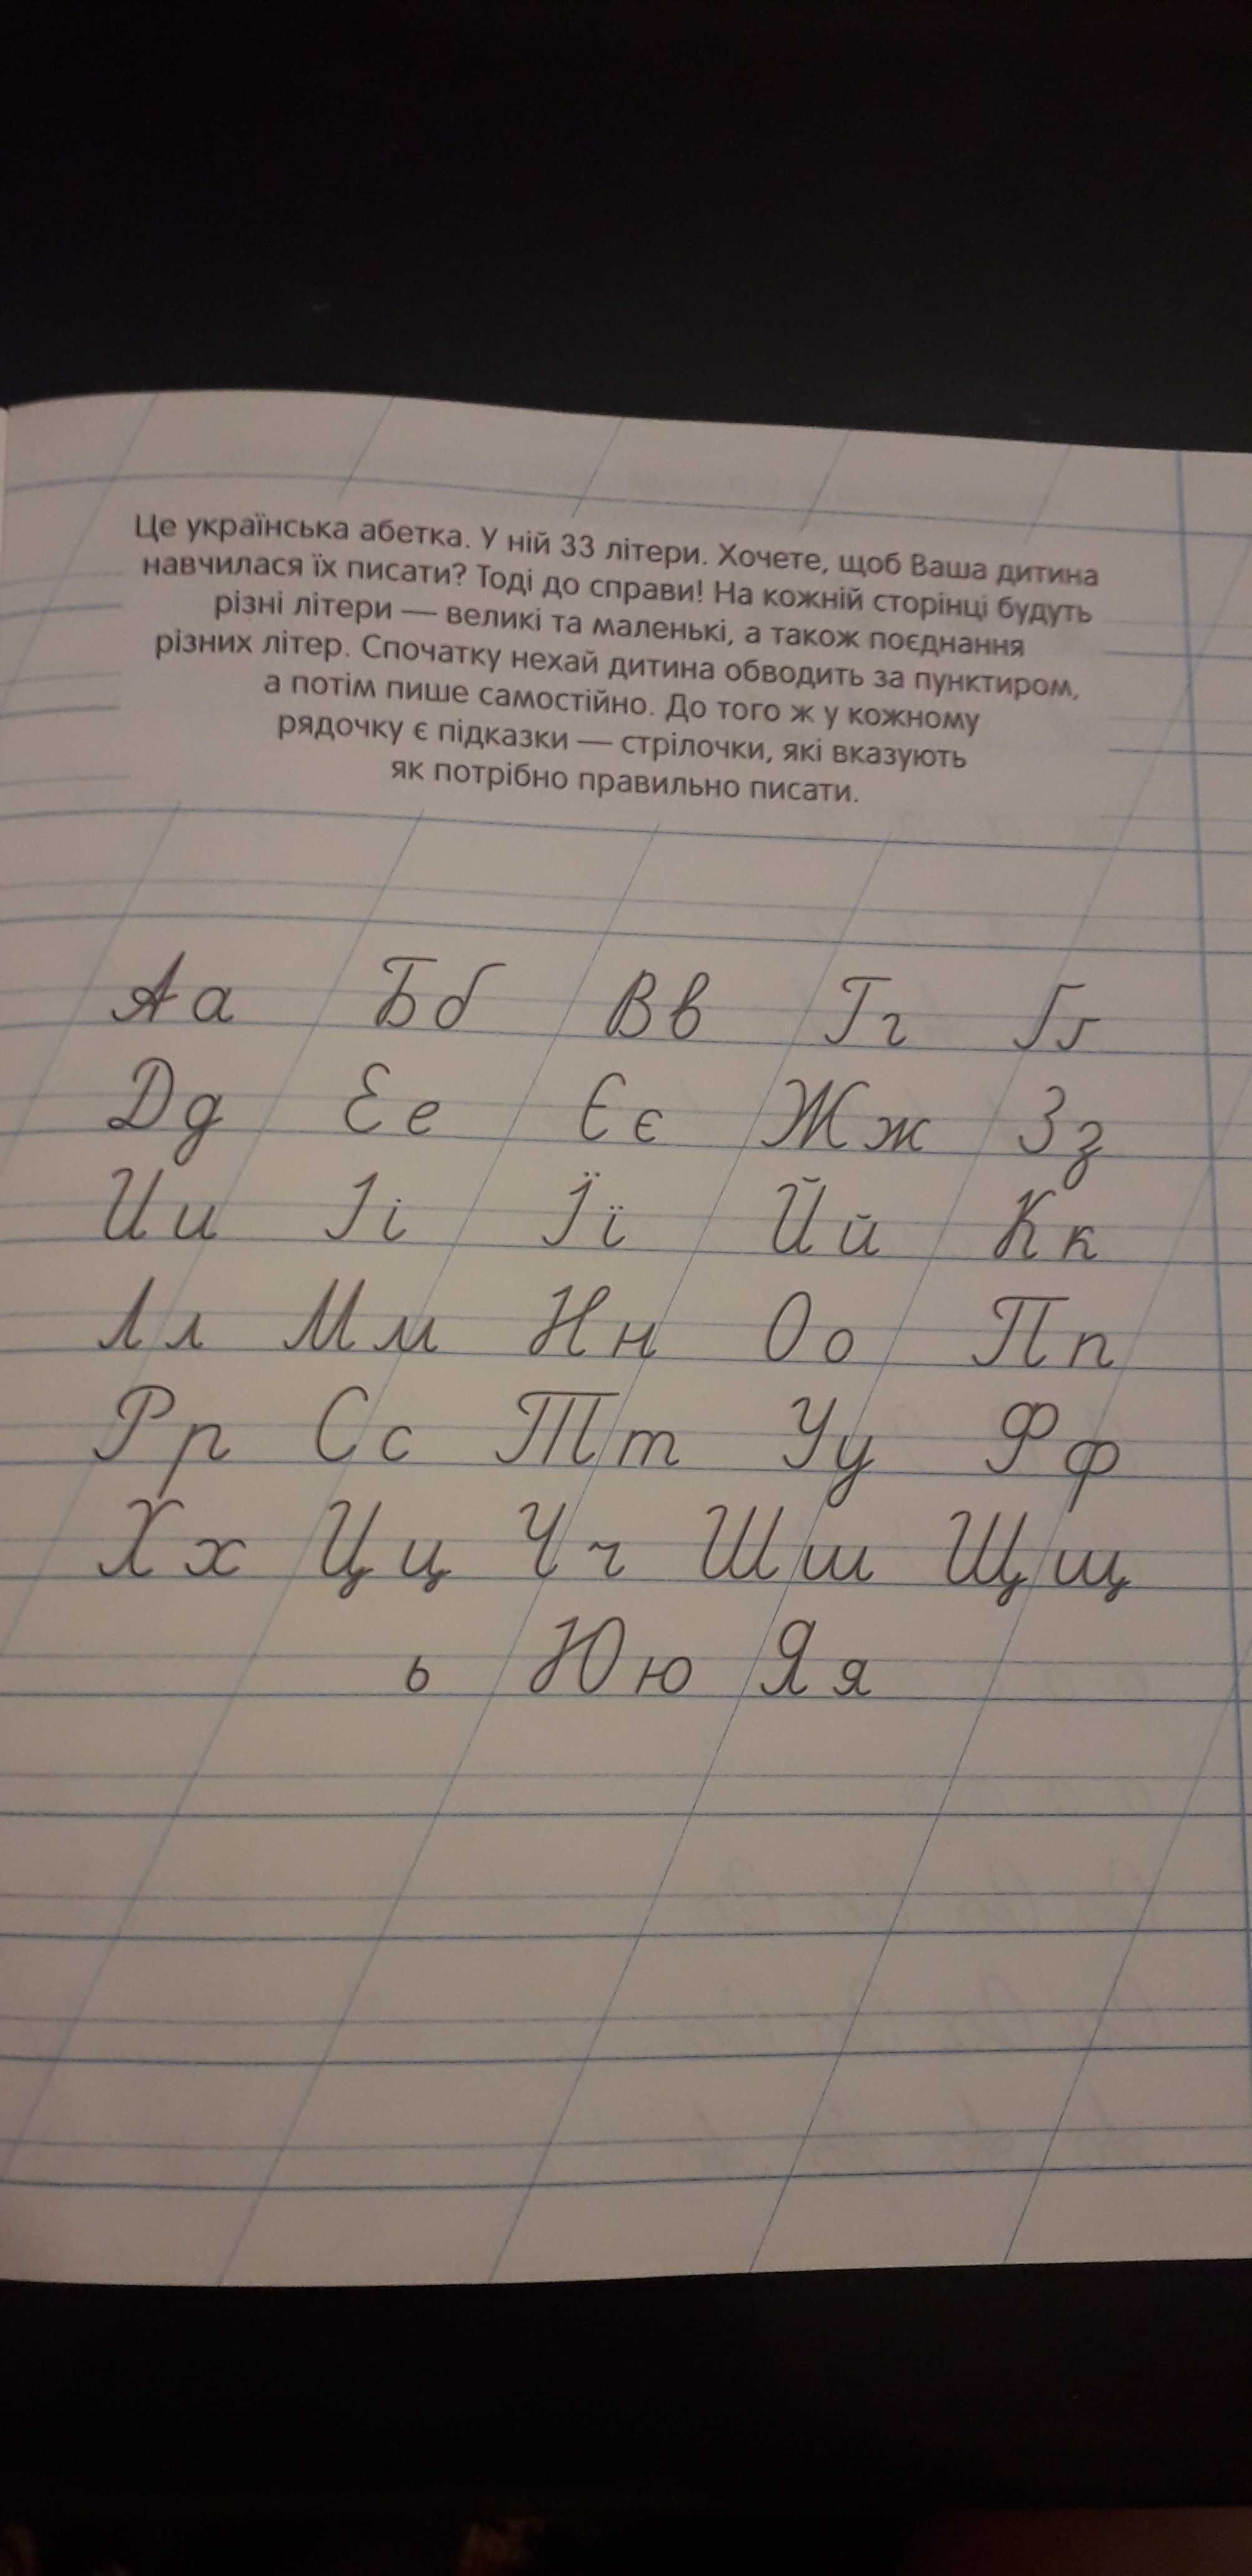 Це українська абетка. У ній 33 літери. Хочете, щоб Ваша дитина
навчилася їх писати? Тоді до справи! На кожній сторінці будуть
різні літери — великі та маленькі, а також поєднання
різних літер. Спочатку нехай дитина обводить за пунктиром,
а потім пише самостійно. До того ж у кожному
рядочку є підказки — стрілочки, які вказують
як потрібно правильно писати.
Аа Бб Вв Гг Ґґ
Дд Ее Єє Жж Зз
Ии Іі Її Йй Кк
Лл Мм Нн Оо Пп
Рр Сс Тт Уу Фф
Хх Цц Чч Шш Щщ
ь Юю Яя